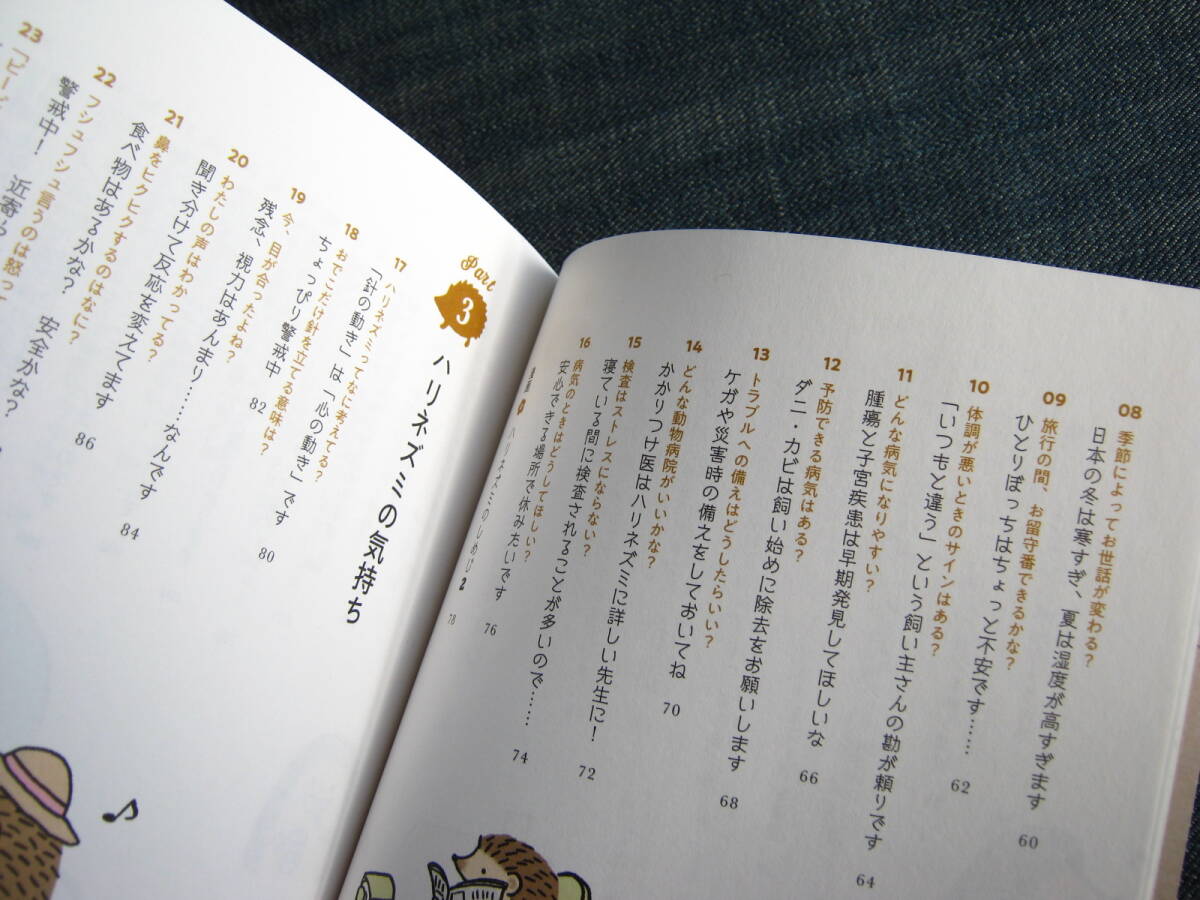 08
季節によってお世話が変わる?
日本の冬は寒すぎ、夏は湿度が高すぎます
60
09
旅行の間、お留守番できるかな?
ひとりぼっちはちょっと不安です……
62
10
体調が悪いときのサインはある?
「いつもと違う」という飼い主さんの勘が頼りです
64
11
どんな病気になりやすい?
腫瘍と子宮疾患は早期発見してほしいな
66
12
予防できる病気はある?
ダニ・カビは飼い始めに除去をお願いします
68
13
トラブルへの備えはどうしたらいい?
ケガや災害時の備えをしておいてね
70
14
どんな動物病院がいいかな?
かかりつけ医はハリネズミに詳しい先生に!
72
15
検査はストレスにならない?
寝ている間に検査されることが多いので……
74
16
病気のときはどうしてほしい?
安心できる場所で休みたいです
76
ハリネズミのしめじ 2
78
Part
3
ハリネズミの気持ち
17
ハリネズミってなに考えてる?
「針の動き」は「心の動き」です
80
18
おでこだけ針を立てる意味は?
ちょっぴり警戒中
82
19
今、目が合ったよね?
残念、視力はあんまり……なんです
84
20
わたしの声はわかってる?
聞き分けて反応を変えてます
86
21
鼻をヒクヒクするのはなに?
食べ物はあるかな? 安全かな?
22
フシュフシュ言うのは怒って
警戒中! 近寄
23